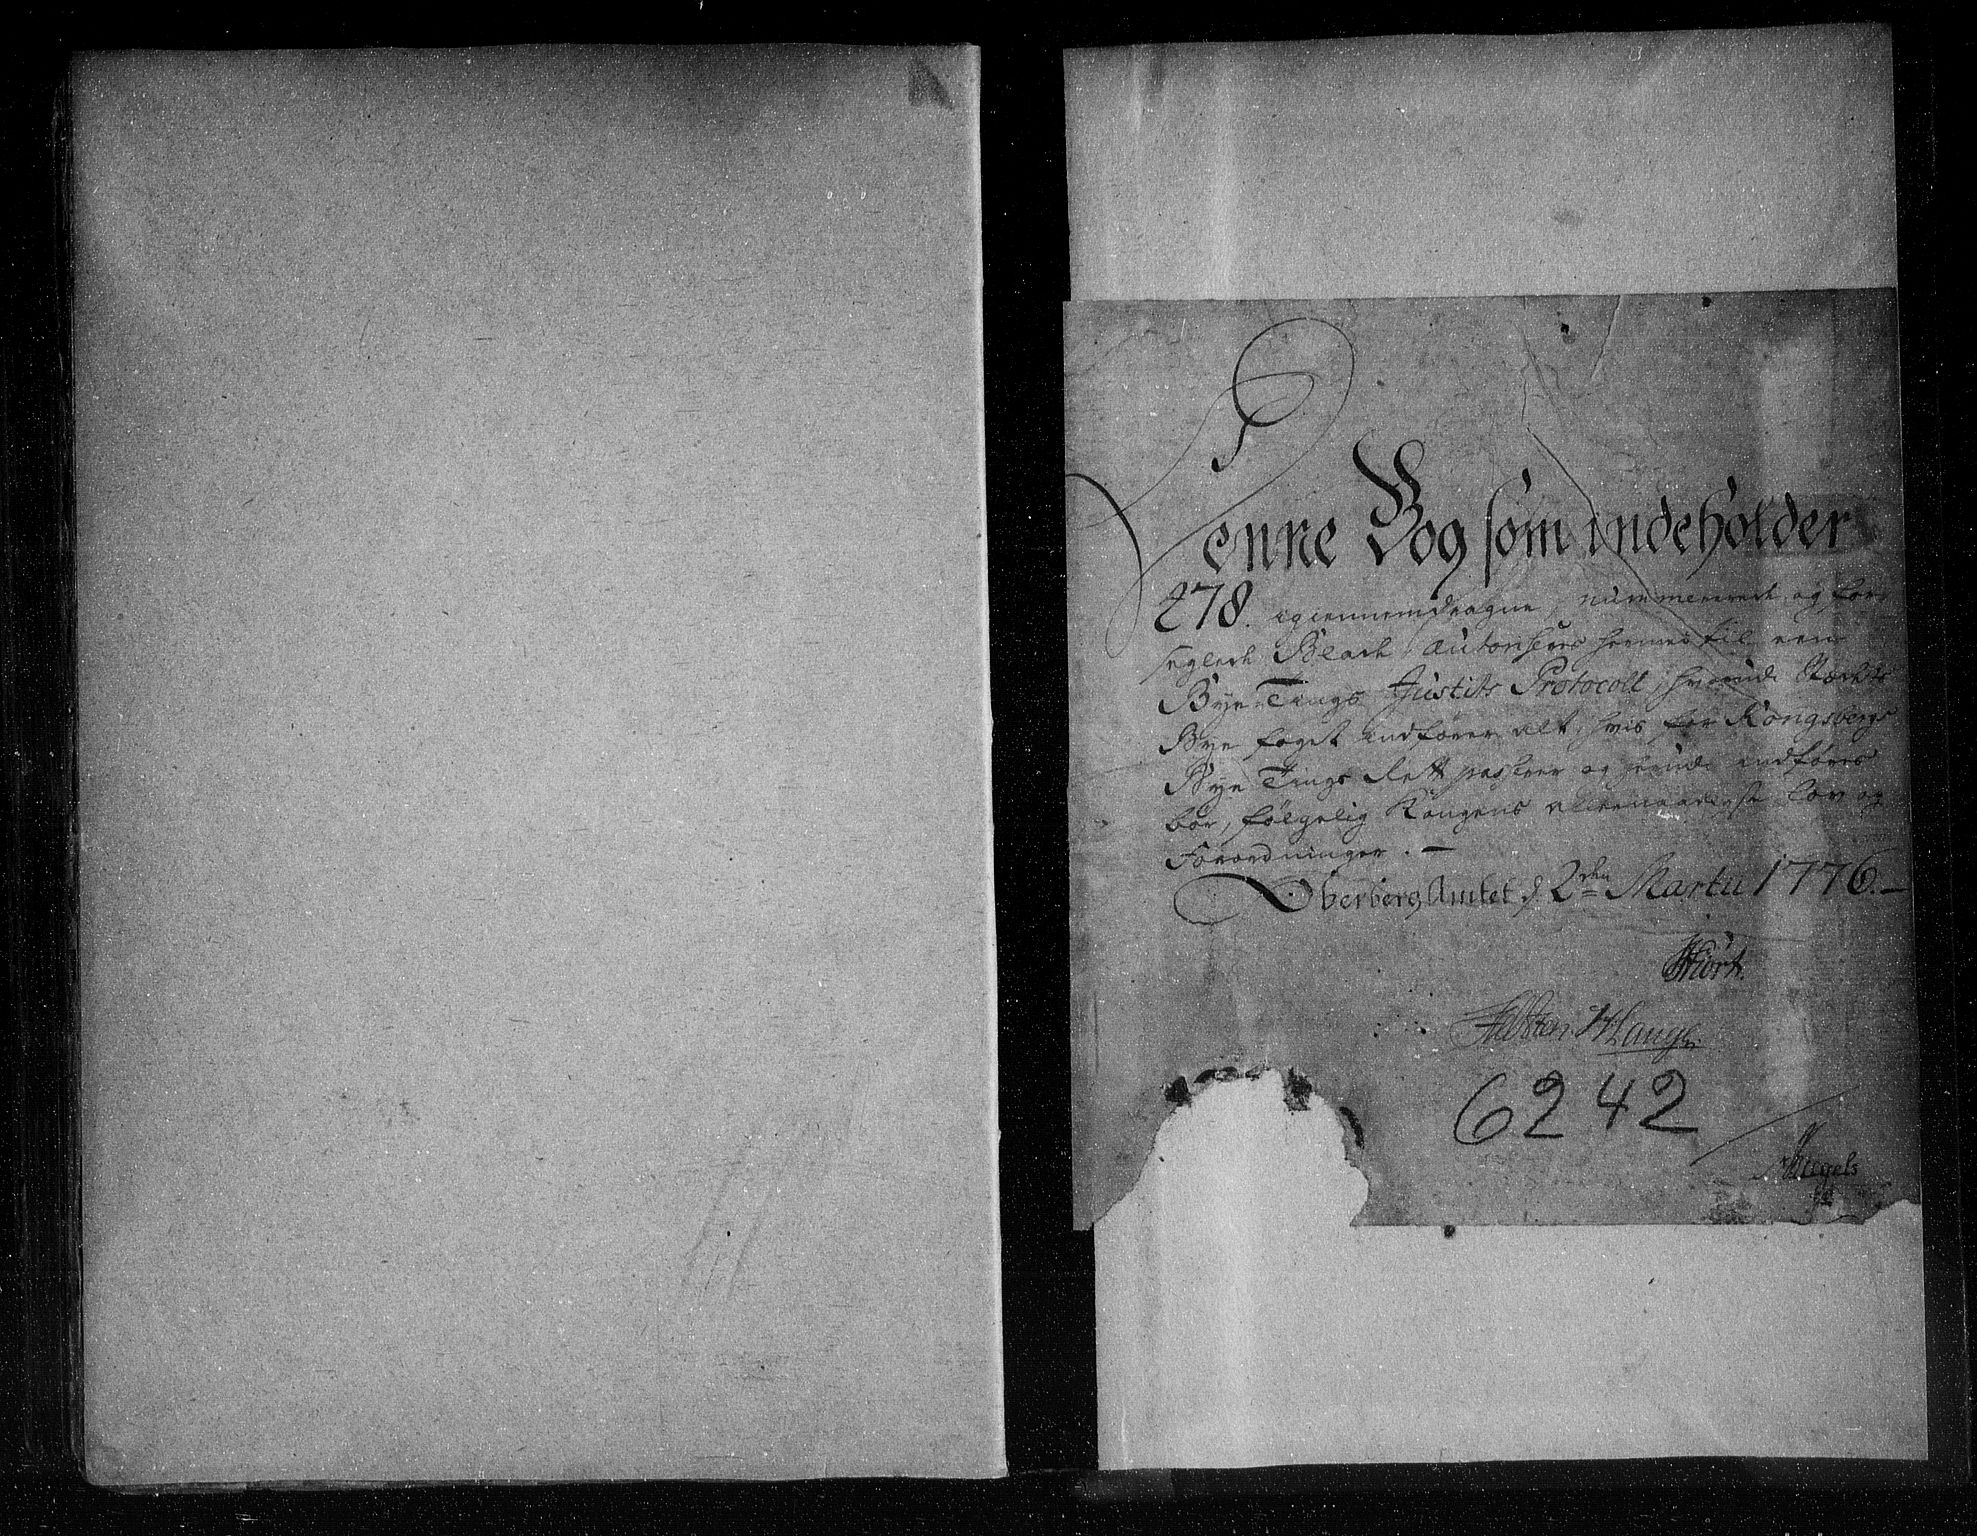 Denne Bog som indeholder
278. igiennemdragne, nummererede og for-
seglede Blade, Autoriseres hermed til een
Bye Tings Justits Protocoll, hvorudi Stædets
Bye foget indfører alt, hvis for Kongsbergs
Bye Tings Rett passerer og herudi indføres
bør, følgelig Kongens allernaadigste Lov og
Forordninger. —
Oberberg Amtet d. 2den Martii 1776. —
Hiort.
6242